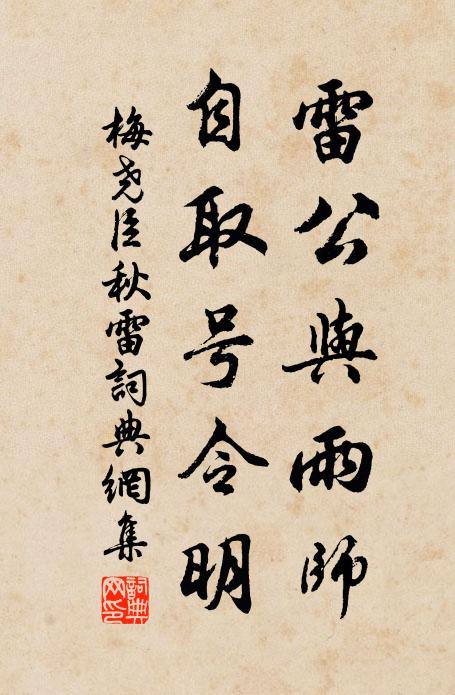 雷公與雨師
自取号令明
梅尧臣秋雷詞典網集
詞典網印